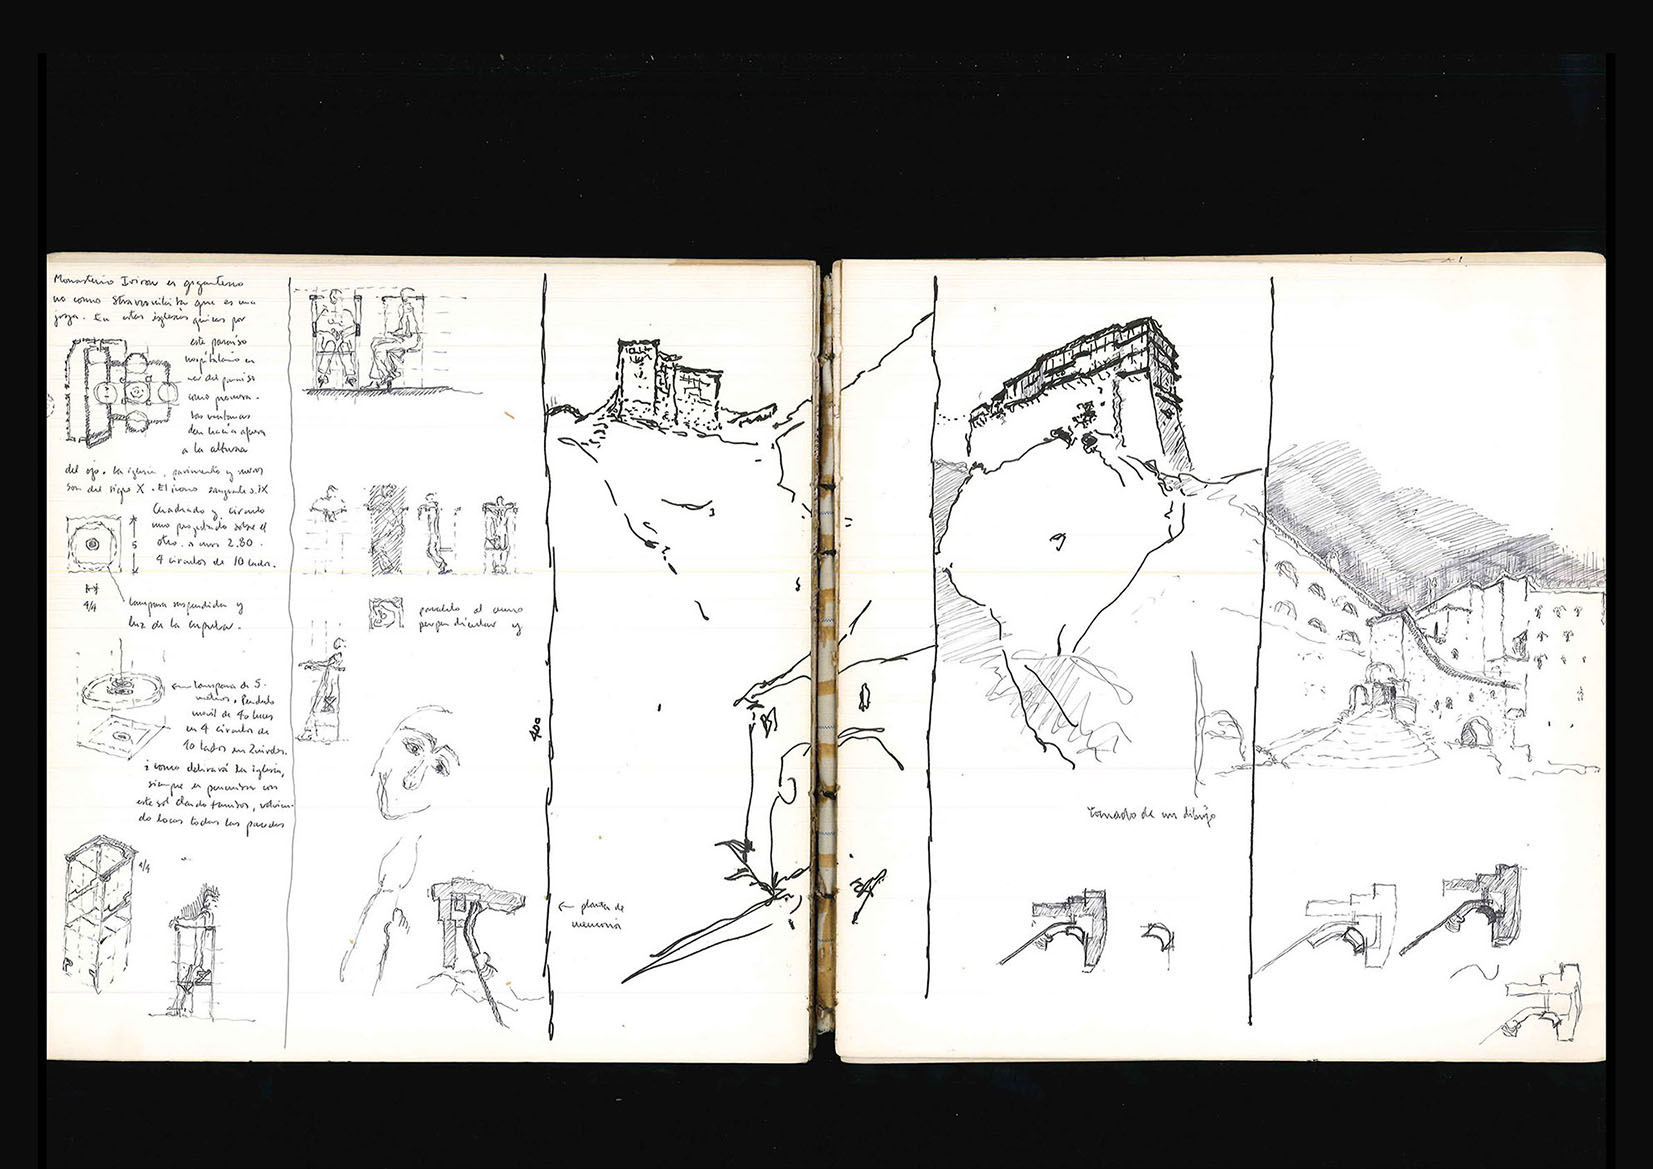 Monasterio Iviron es gigantesco
no como Stravronikita que es una
joya. En estas iglesias quizas por
este paraiso
hospitalario en
vez del paraiso
como promesa.
Las ventanas
dan hacia afuera
a la altura
del ojo. La iglesia, pavimento y muros
son del siglo X. El icono sangrante s. IX
Cuadrado y círculo
uno proyectado sobre el
otro. a unos 2.80.
4 círculos de 10 lados.
5
4/4
lampara suspendida y
luz de la cupula.
← lampara de 5
metros. Pendulo
movil de 40 luces
en 4 circulos de
10 lados en 2 niveles.
i como delirará la iglesia,
siempre en penumbra con
este sol dando tumbos, volvien-
do locas todas las paredes
4/4
paralelo al muro
perpendicular y
400
← planta de
memoria
tomado de un dibujo